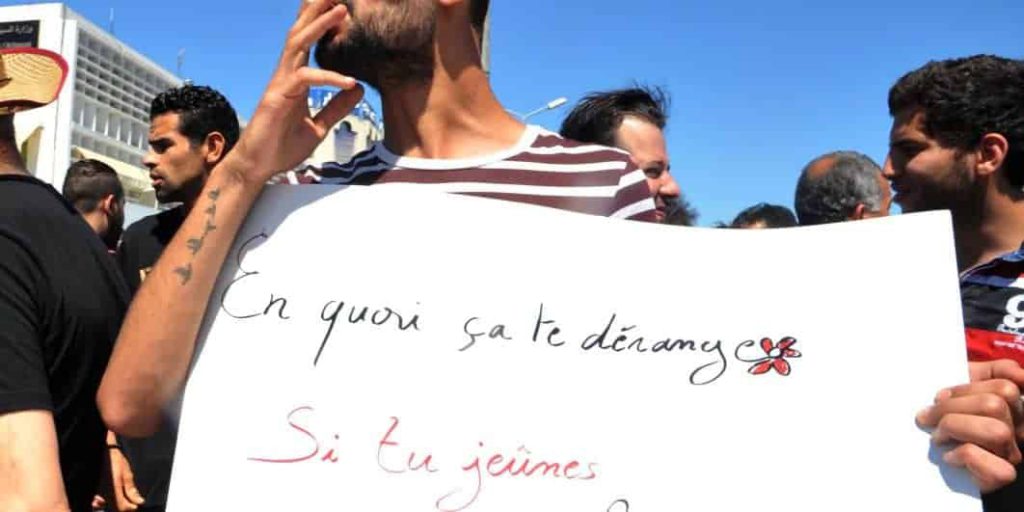 En quoi ça te dérange
Si tu jeûnes